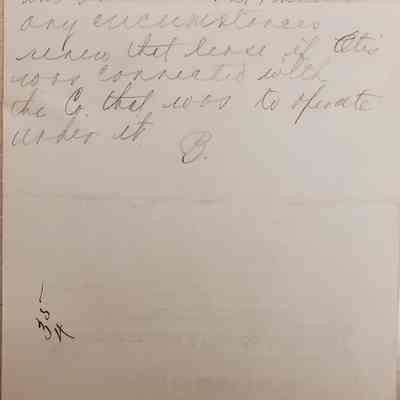 any circumstances
renew that lease if Otis
was connected with
the Co. that was to operate
under it
B.
35